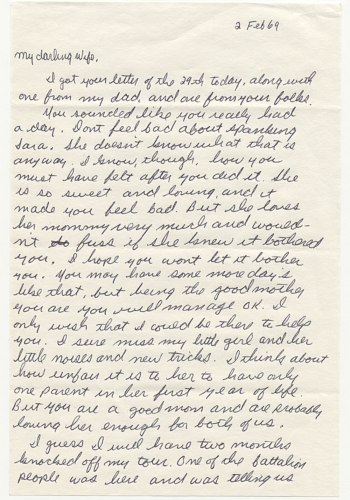 2 Feb 69
My darling Wife,
I got your letter of the 29th today, along with
one from my dad, and are from your folks.
You sounded like you really had
a day. Don't feel bad about spanking
Sara. She doesn't know what that is
anyway. I know, though, how you
must have felt after you did it. She
is so sweet and loving and it
made you feel bad. But she loves
her mommy very much and would-
n't fuss if she knew it bothered
you. I hope you won't let it bother
you. You may have some more day's
like that, but being the good mother
you are you will manage OK. I
only wish that I could be there to help
you. I sure miss my little girl and her
little noises and new tricks. I think about
how unfair it is to her to have only
one parent in her first year of life.
But you are a good mom and are probably
loving her enough for both of us.
I guess I will have two months
knocked off my tour. One of the battalion
people was here and was telling us